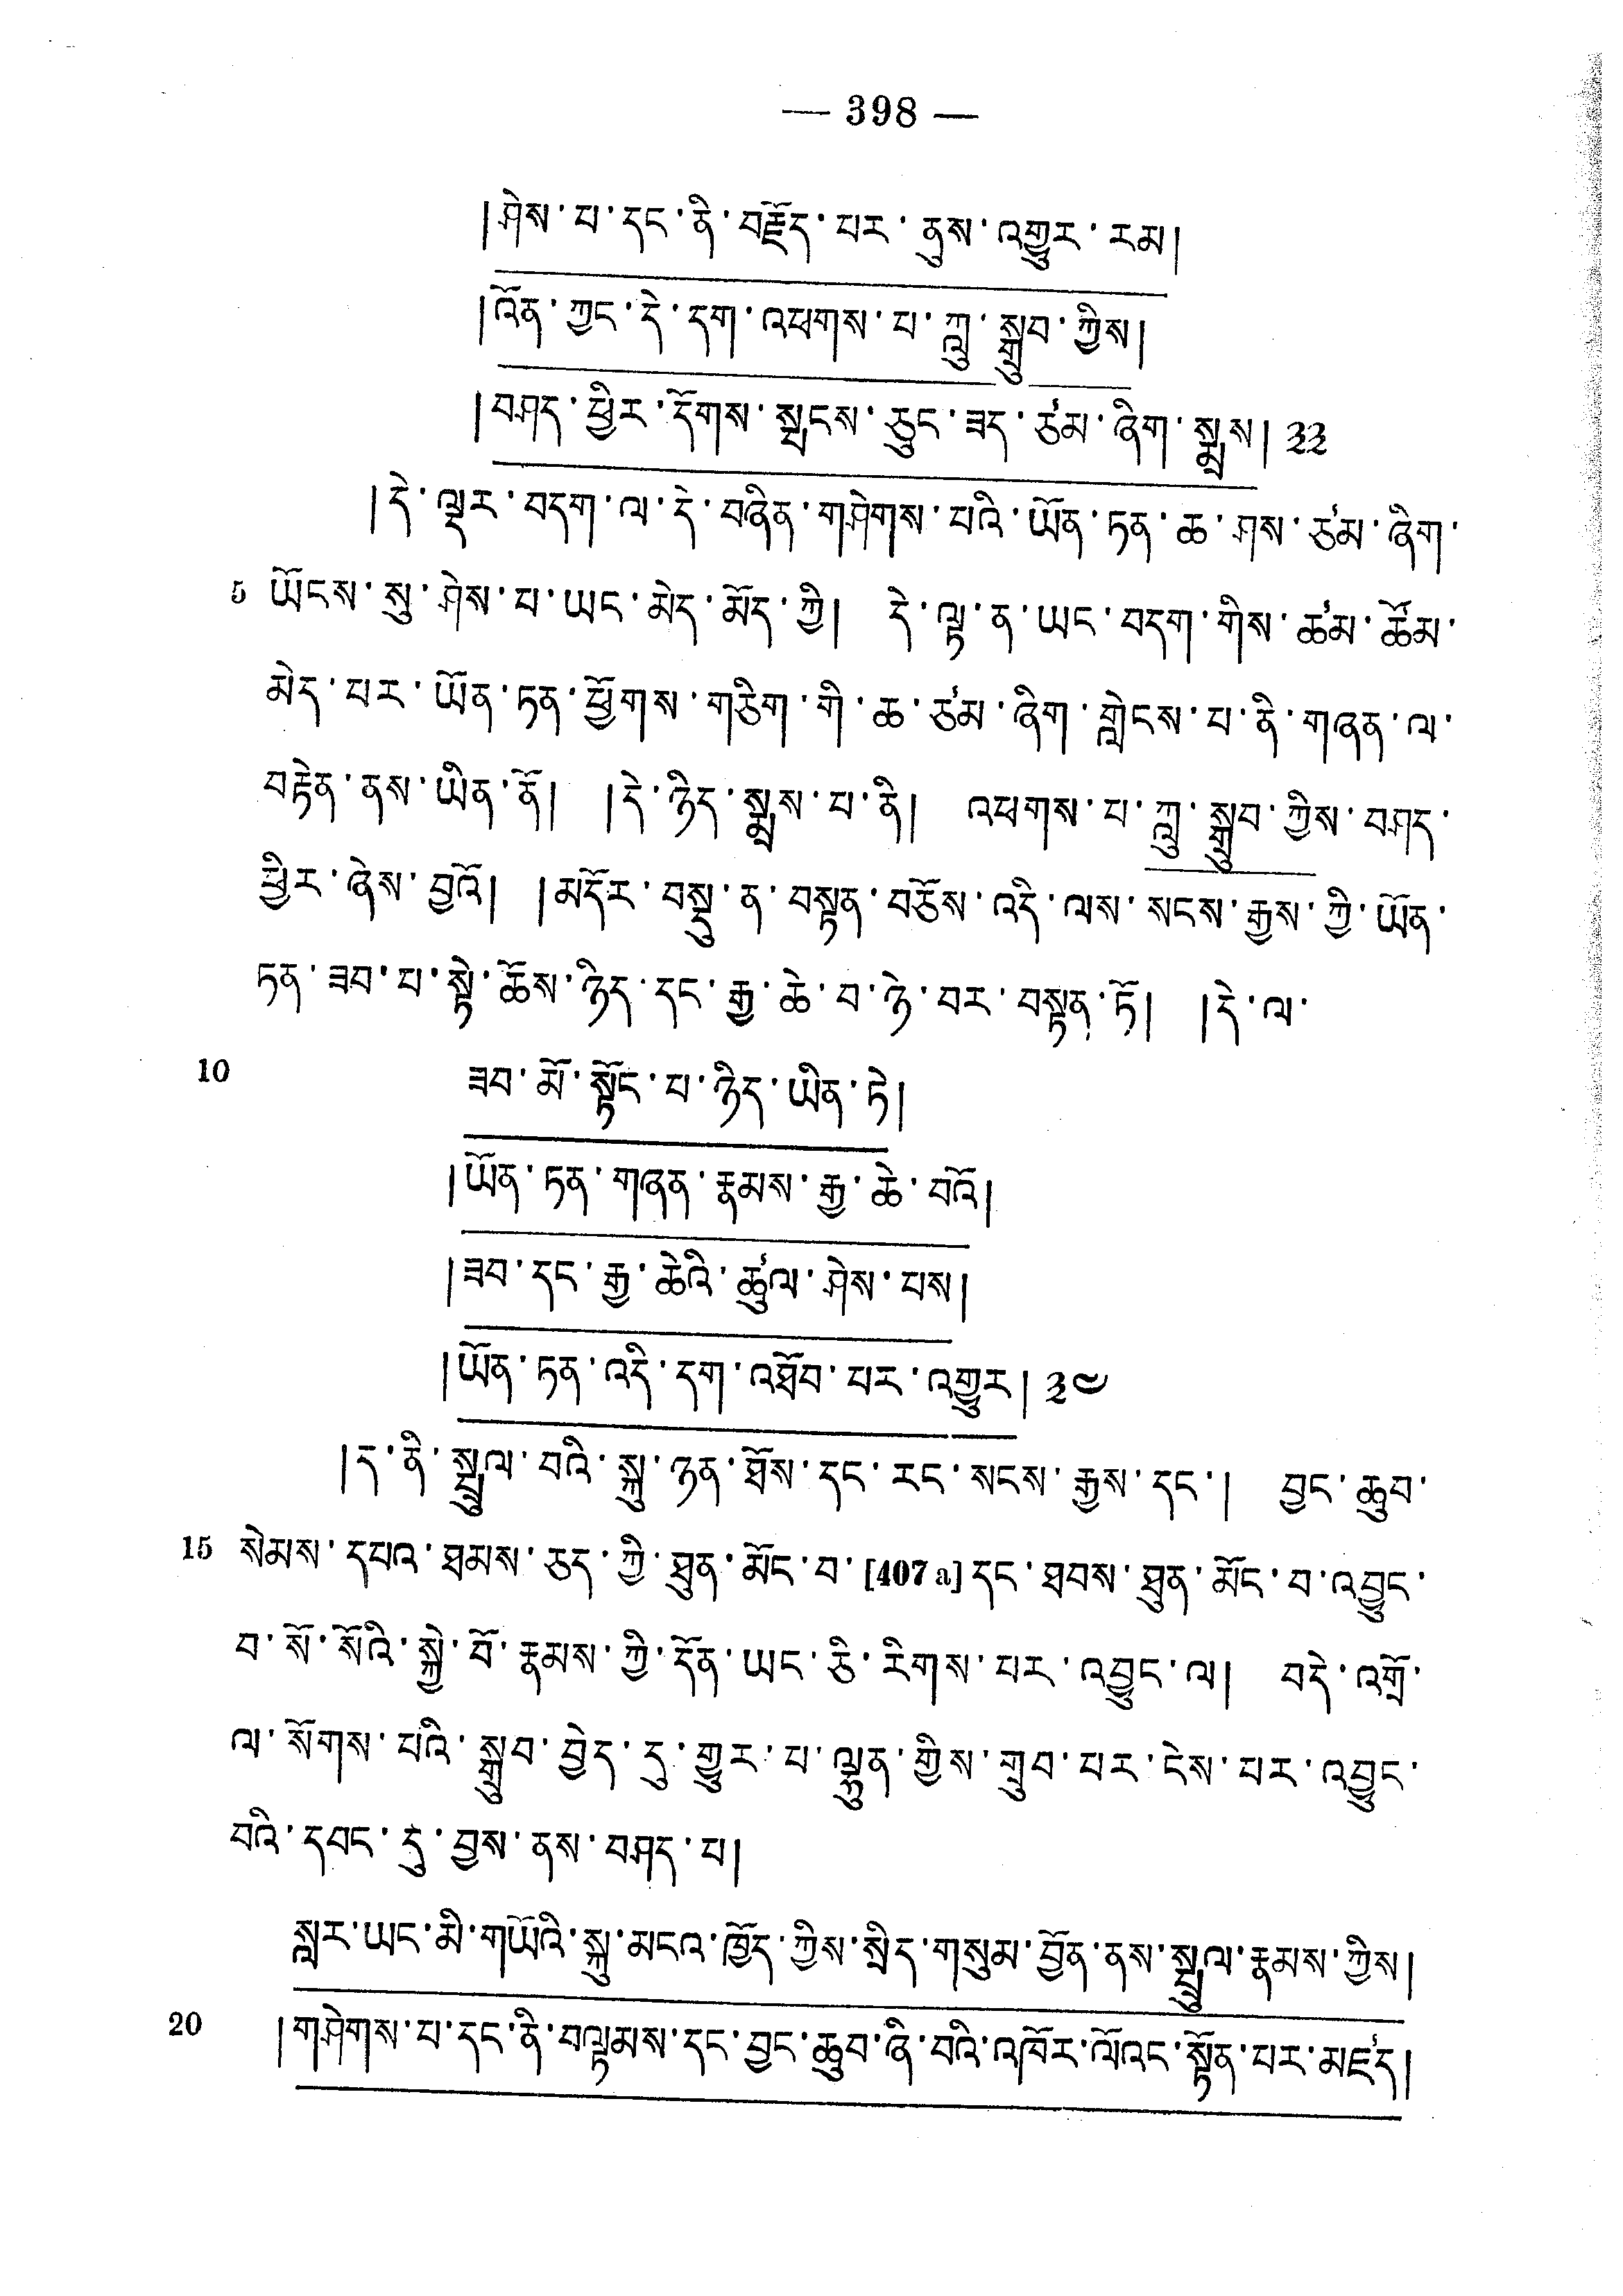 — 398 —
།ཤེས་པ་དང་ནི་བརྗོད་པར་ནུས་འགྱུར་རམ།
།འོན་ཀྱང་དེ་དག་འཕགས་པ་ཀླུ་སྒྲུབ་ཀྱིས།
།བཤད་ཕྱིར་དོགས་སྤངས་ཅུང་ཟད་ཙམ་ཞིག་སྨྲས། ༣༣
།དེ་ལྟར་བདག་ལ་དེ་བཞིན་གཤེགས་པའི་ཡོན་ཏན་ཆ་ཤས་ཙམ་ཞིག་
5 ཡོངས་སུ་ཤེས་པ་ཡང་མེད་མོད་ཀྱི། དེ་ལྟ་ན་ཡང་བདག་གིས་ཚམ་ཚོམ་
མེད་པར་ཡོན་ཏན་ཕྱོགས་གཅིག་གི་ཆ་ཙམ་ཞིག་གླེངས་པ་ནི་གཞན་ལ་
བརྟེན་ནས་ཡིན་ནོ། །དེ་ཉིད་སྨྲས་པ་ནི། འཕགས་པ་ཀླུ་སྒྲུབ་ཀྱིས་བཤད་
ཕྱིར་ཞེས་བྱའོ། །མདོར་བསྡུ་ན་བསྟན་བཅོས་འདི་ལས་སངས་རྒྱས་ཀྱི་ཡོན་
ཏན་ཟབ་པ་སྟེ་ཆོས་ཉིད་དང་རྒྱ་ཆེ་བ་ཉེ་བར་བསྟན་ཏོ། །དེ་ལ་
10 ཟབ་མོ་སྟོང་པ་ཉིད་ཡིན་ཏེ།
།ཡོན་ཏན་གཞན་རྣམས་རྒྱ་ཆེ་བའོ།
།ཟབ་དང་རྒྱ་ཆེའི་ཚུལ་ཤེས་པས།
།ཡོན་ཏན་འདི་དག་འཐོབ་པར་འགྱུར། ༣༤
།ད་ནི་སྤྲུལ་བའི་སྐུ་ཉན་ཐོས་དང་རང་སངས་རྒྱས་དང་། བྱང་ཆུབ་
15 སེམས་དཔའ་ཐམས་ཅད་ཀྱི་ཐུན་མོང་བ་[407 a]དང་ཐབས་ཐུན་མོང་བ་འབྱུང་
བ་སོ་སོའི་སྐྱེ་བོ་རྣམས་ཀྱི་དོན་ཡང་ཅི་རིགས་པར་འབྱུང་ལ། བདེ་འགྲོ་
ལ་སོགས་པའི་སྒྲུབ་བྱེད་དུ་གྱུར་པ་ལྷུན་གྱིས་གྲུབ་པར་ངེས་པར་འབྱུང་
བའི་དབང་དུ་བྱས་ནས་བཤད་པ།
སླར་ཡང་མི་གཡོའི་སྐུ་མངའ་ཁྱོད་ཀྱིས་སྲིད་གསུམ་བྱོན་ནས་སྤྲུལ་རྣམས་ཀྱིས།
20 །གཤེགས་པ་དང་ནི་བལྟམས་དང་བྱང་ཆུབ་ཞི་བའི་འཁོར་ལོའང་སྟོན་པར་མཛད།